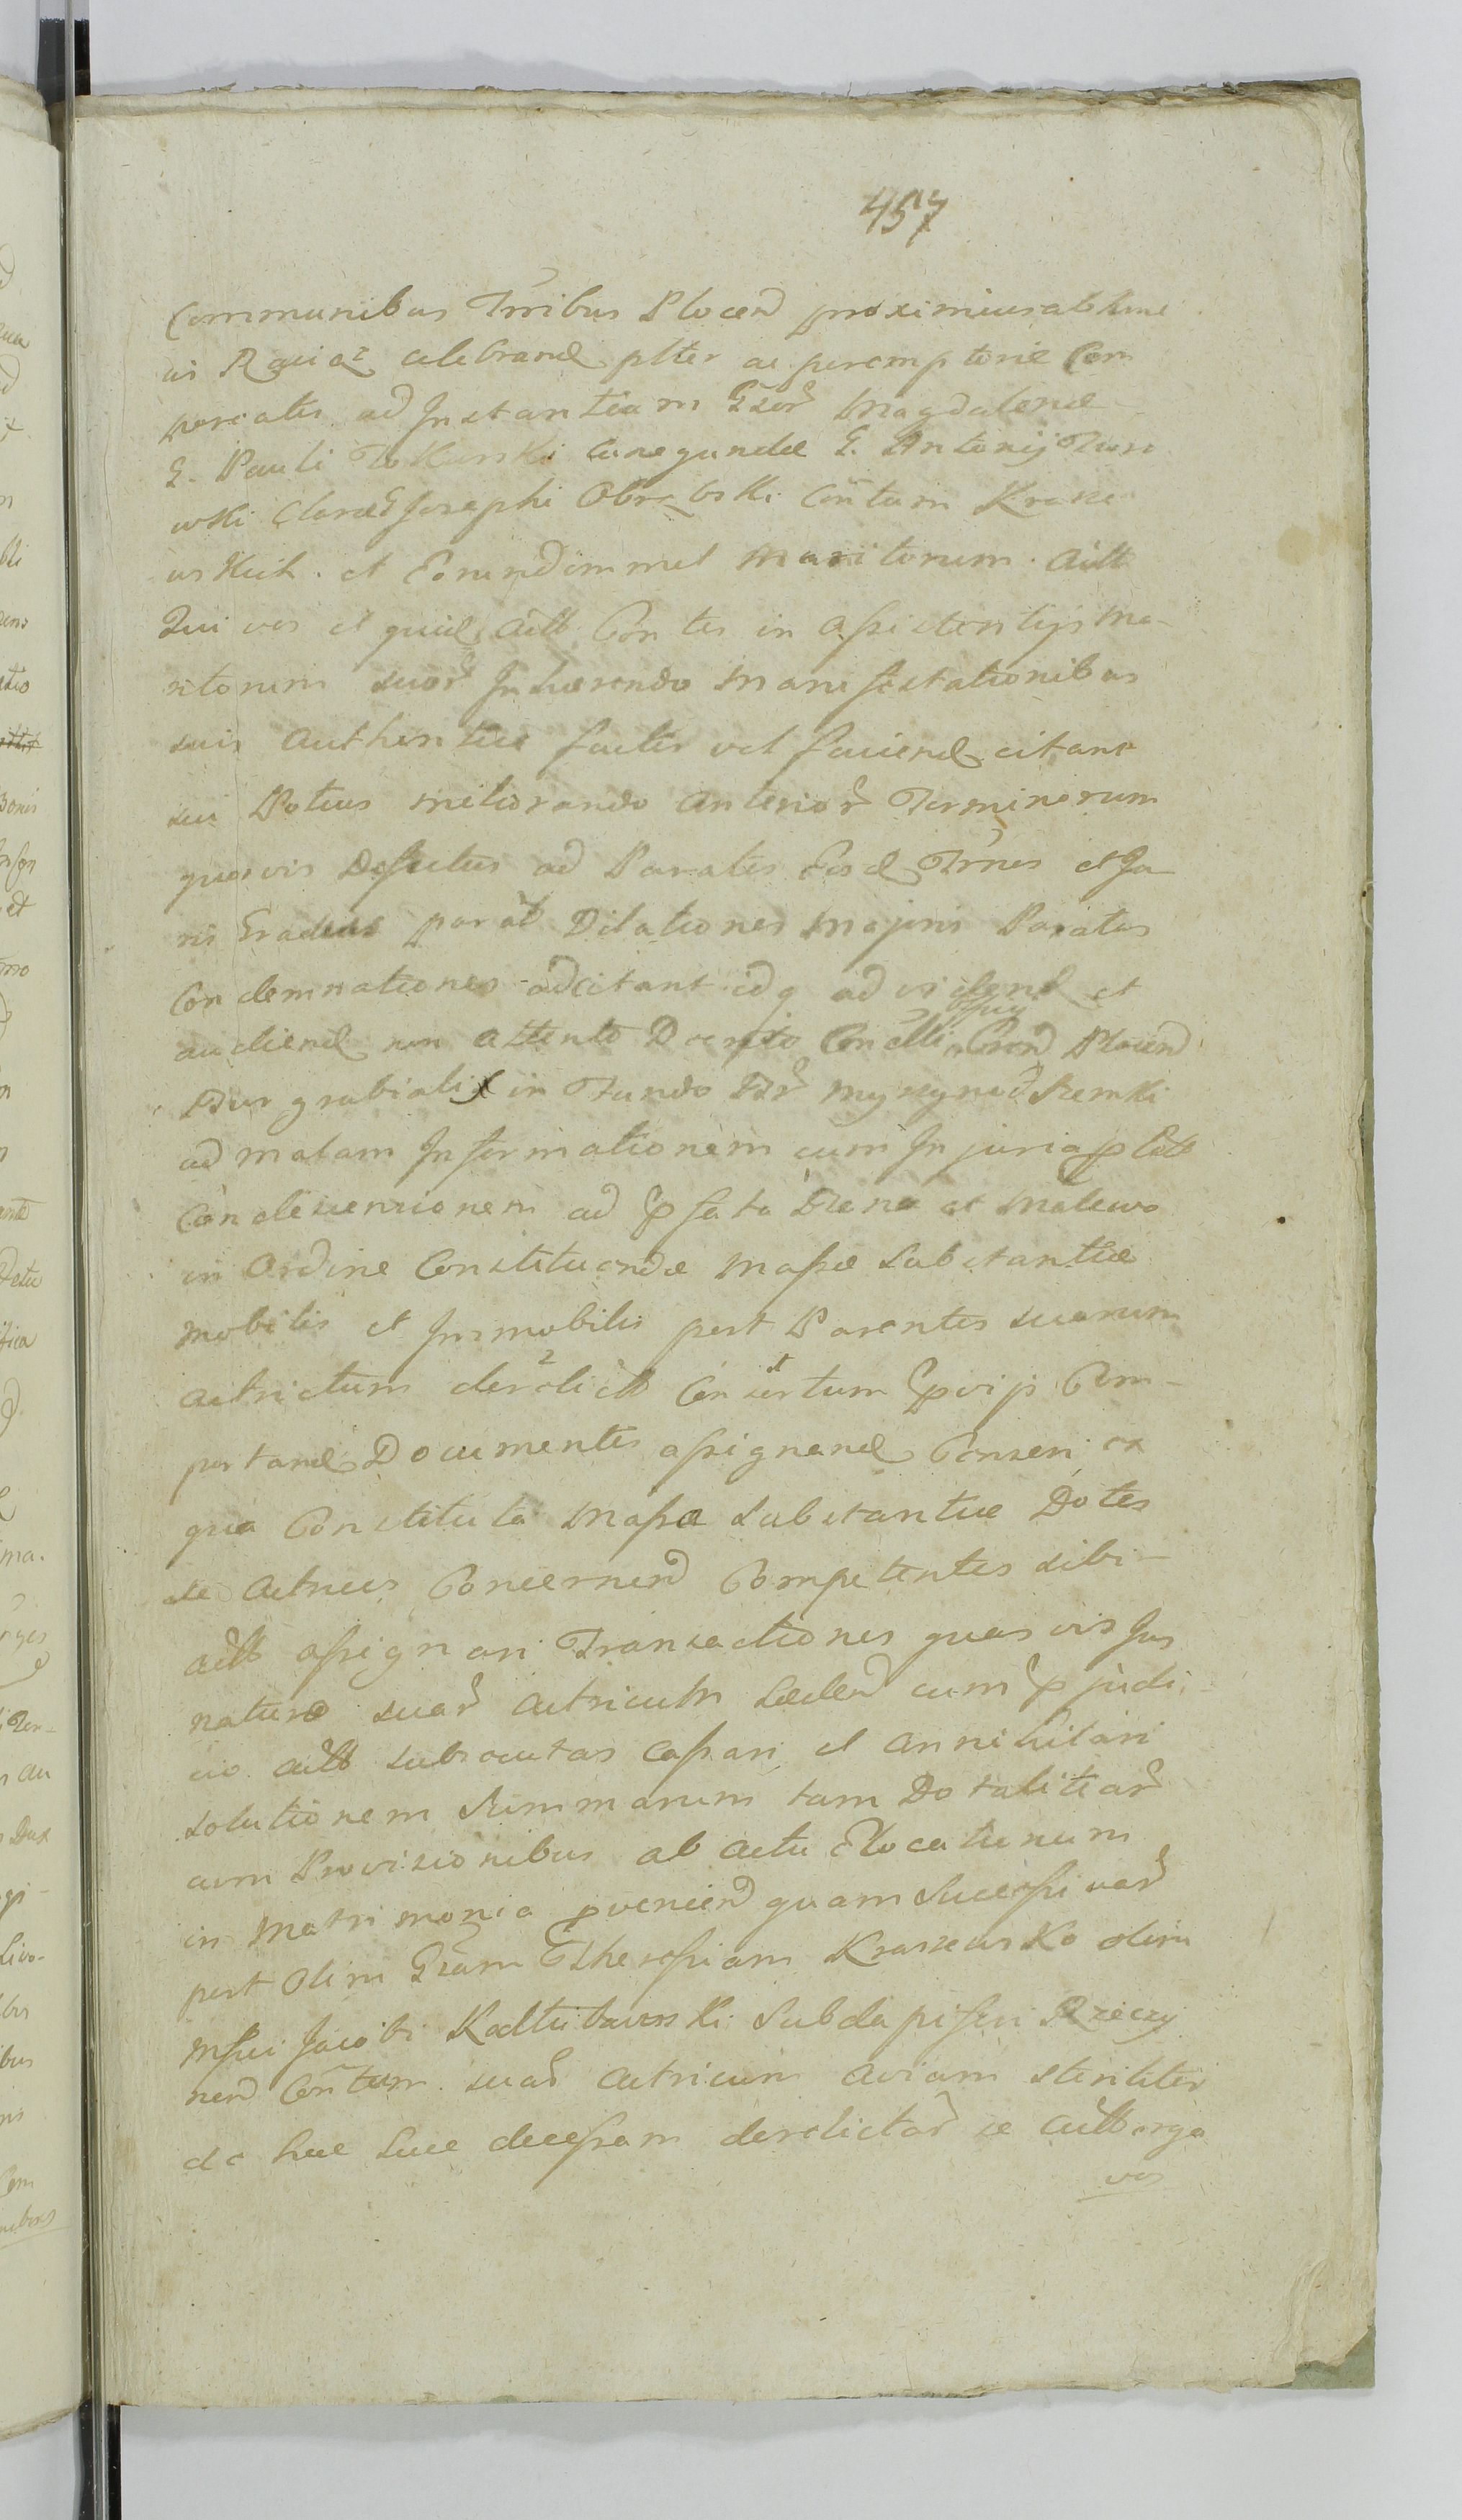 457
Communibus Trribus Plocen proximius ab hinc
in Raciąz celebrand plter ac peremptorie Com
pareatis ad Instantiam Gsor Magdalenæ
G. Pauli Cunegundæ G. Antonij Turo
wski Claræ G Josephi Obrębski Contum Krasze
wskich. et Eorundemmet Maritorum. Actt
Qui vos et quid Actt Contes in Assistentijs Ma-
ritorum suor Inhærendo Manifestationibus
suis Authentice factis vel faciend citant
seu Potius meliorando anterior Terminorum
quosvis Defectus ad Paratis Eosd Trnos et Ju
ris Gradus parat Dilationes Majoris Paratas
Condemnationes adcitant idq ad vidend et
audiend non attento Decreto Condlli Offcij Cond Plocen
Burgrabialis in Fundo Br
ad malam Informationem cum Injuria
Condescensionem ad præfata Bona et Malewo
in Ordine Constituendæ Massæ Substantiæ
Mobilis et Immobilis post Parentes suarum
actricium derelictt
portand Documentis assignand Conseri ex
qua Constituta Massa Substantiæ Dotes
se Actrices Concernen Competentes sibi
actt assignari Transactiones quas vis Jus
naturæ suar Actricum Læden cum præjudi-
cio actt subsecutas Cassari et annihilari
solutionem Summarum tam Dotalitiar
cum Provisionibus ab actu Elocationum
in Matrimonia provenien quam Successivar
post olim Gsam Theresiam Kraszewsko olim
Mfici Jacobi Subdapiferi
nen Contem. suar Actricum Aviam steriliter
de hac luce decessam derelictar se actt erga
vos